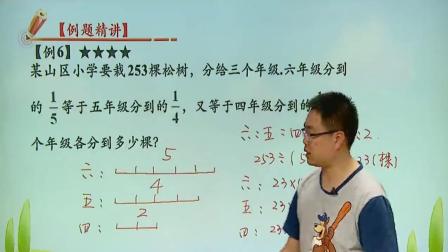 【例题精讲】
【例6】★★★★
某山区小学要栽253棵松树，分给三个年级.六年级分到
的 1/5 等于五年级分到的 1/4，又等于四年级分到的
个年级各分到多少棵?
六：五：四 :2.
253÷(5 23(棵)
六：23×
五：23×
四：23
5
六：
4
五：
2
四：